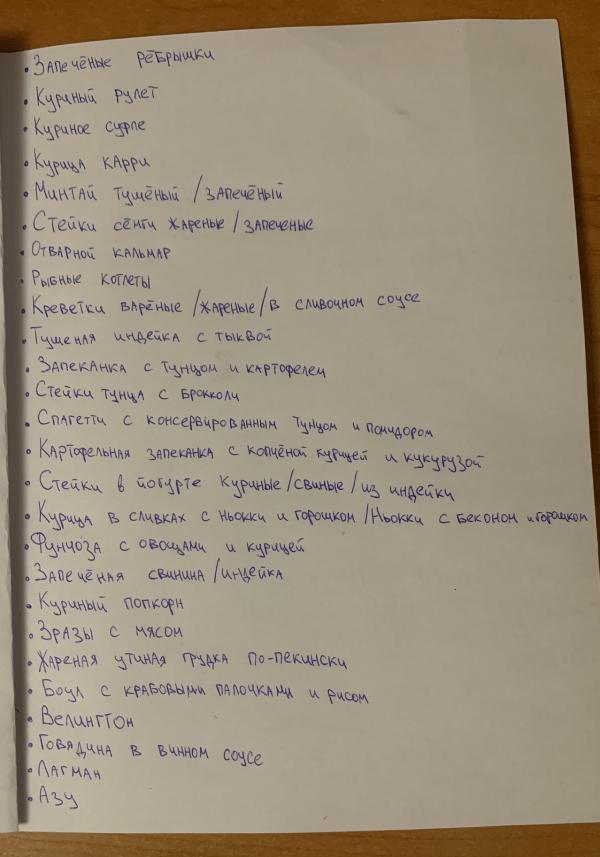 • Запечёные рёбрышки
• Куриный рулет
• Куриное суфле
• Курица карри
• Минтай тушёный / запечёный
• Стейки сёмги жареные / запеченые
• Отварной кальмар
• Рыбные котлеты
• Креветки варёные / жареные / в сливочном соусе
• Тушеная индейка с тыквой
• Запеканка с тунцом и картофелем
• Стейки тунца с брокколи
• Спагетти с консервированным тунцом и помидором
• Картофельная запеканка с копчёной курицей и кукурузой
• Стейки в йогурте куриные / свиные / из индейки
• Курица в сливках с ньокки и горошком / Ньокки с беконом и горошком
• Фунчоза с овощами и курицей
• Запечёная свинина / индейка
• Куриный попкорн
• Зразы с мясом
• Жареная утиная грудка по-пекински
• Боул с крабовыми палочками и рисом
• Велингтон
• Говядина в винном соусе
• Лагман
• Азу